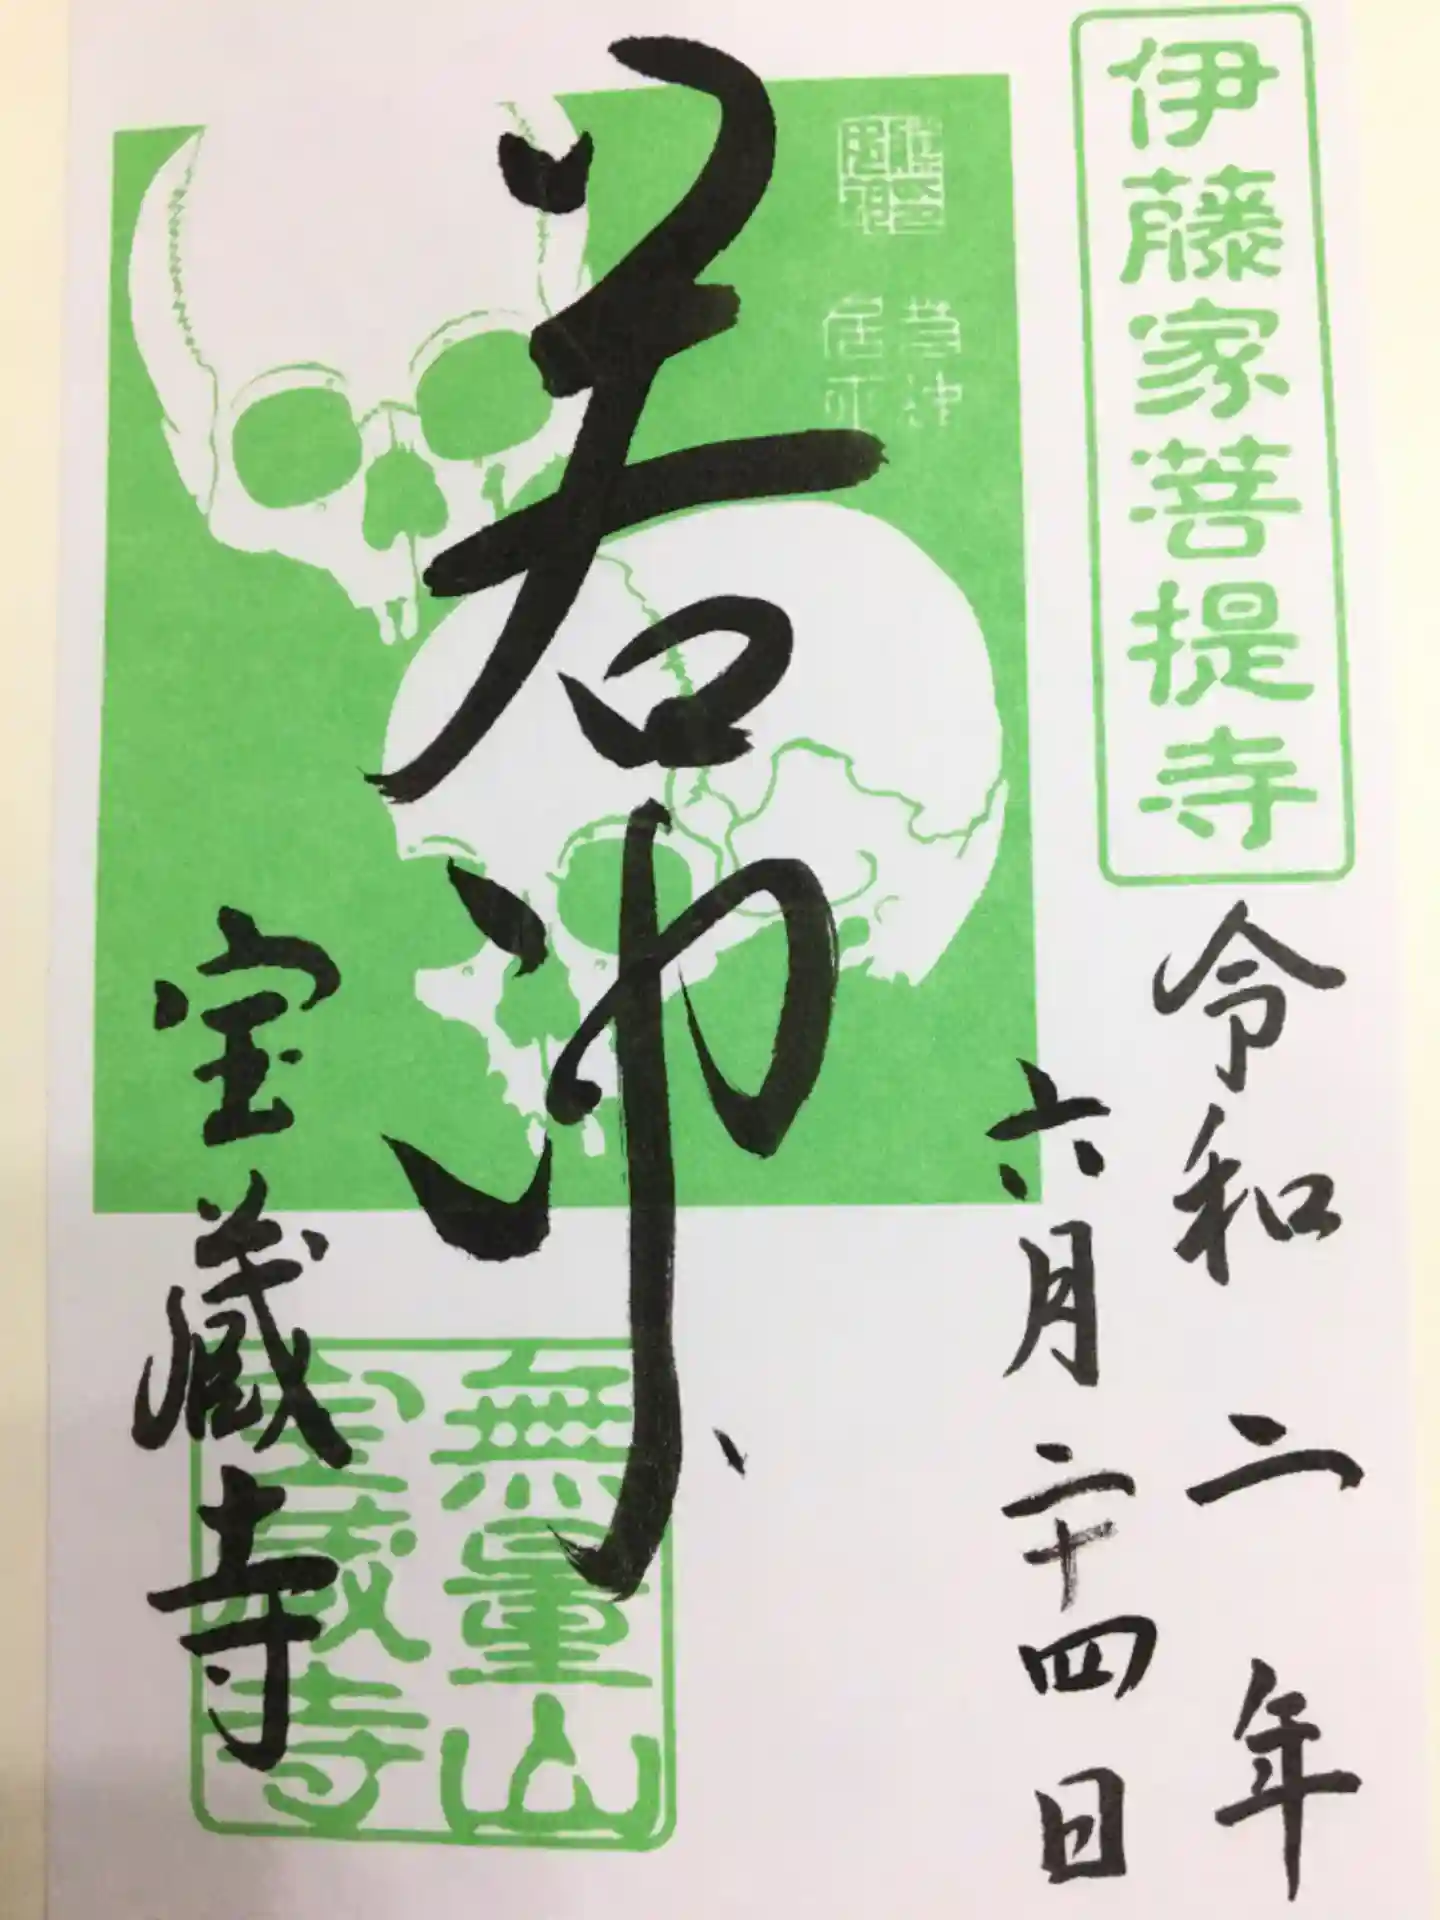 伊藤家菩提寺
令和二年
六月二十四日
若冲
宝蔵寺
無量山
宝蔵寺